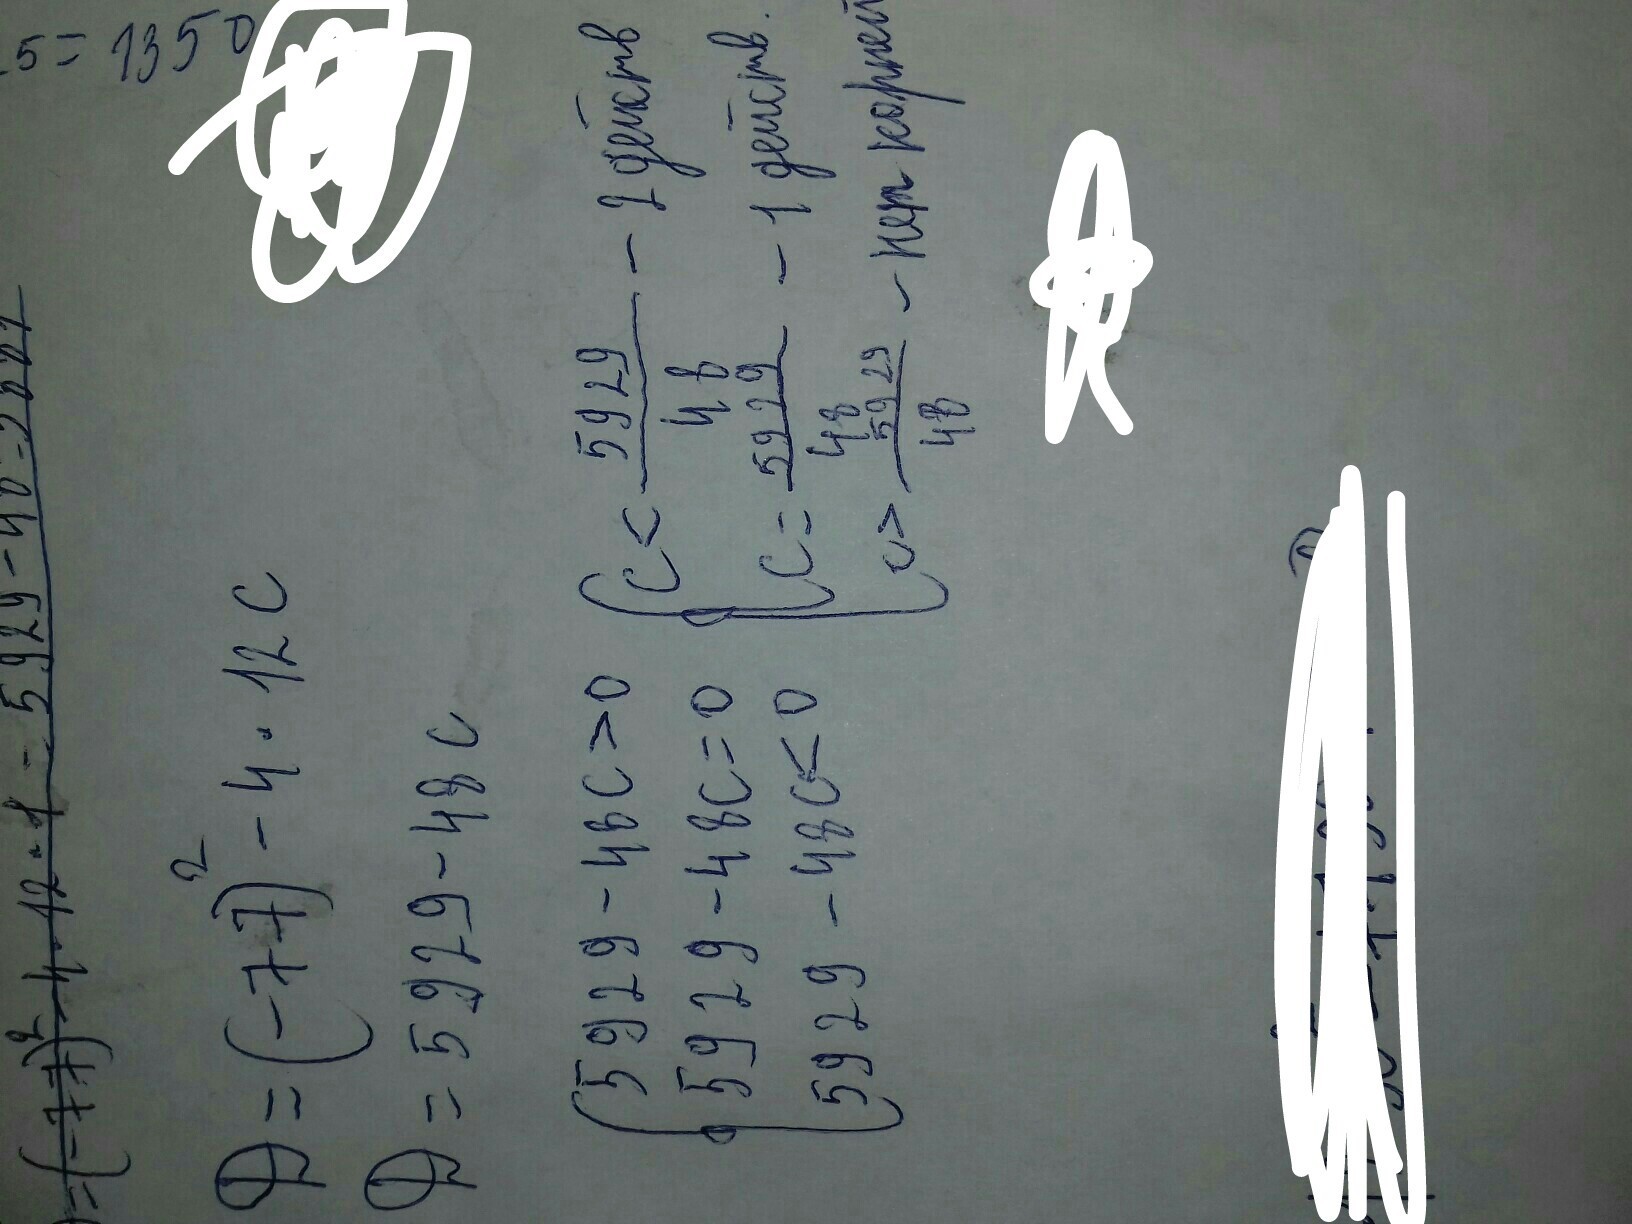 .5 = 1350
= (-77)² - 4 · 12 · 1 = 5929 - 48 =
D = (-77)² - 4 · 12c
D = 5929 - 48c
5929 - 48c > 0
5929 - 48c = 0
5929 - 48c < 0
c < 5929/48 - 2 действ
c = 5929/48 - 1 действ.
c > 5929/48 - нет корней